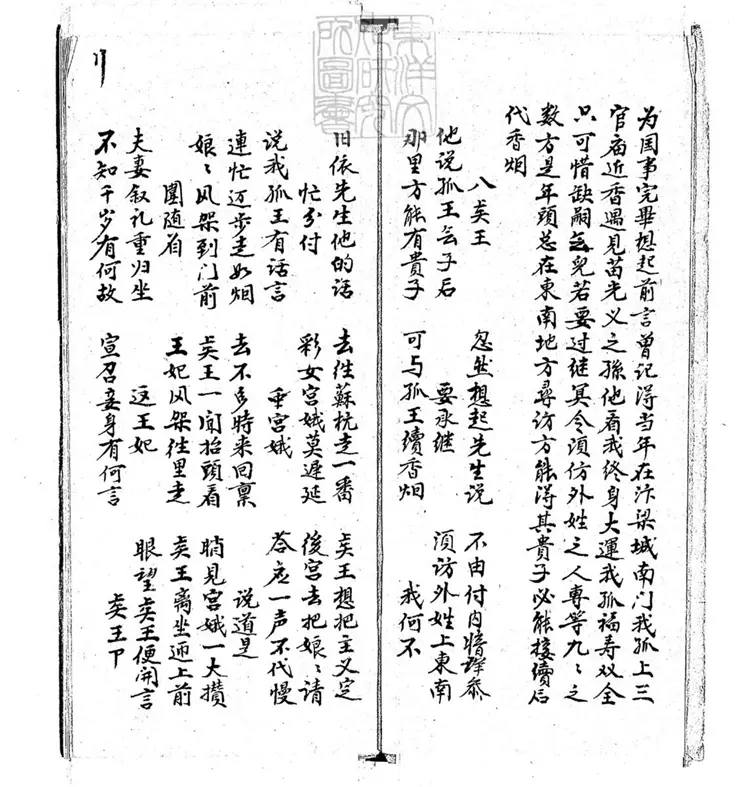 为国事完畢想起前言曾记得当年在汴梁城南门我孤上三
官庙近香遇見苗光义之孫他看我终身大運我孤福寿双全
只可惜缺嗣兒若要过继冥令须仿外姓之人専等九〻之
数方是年頭总在東南地方尋访方能得其貴子必能接續后
代香烟
八㚖王 忽然想起先生说 不由付内暗詳叅
他说孤王无子后 要承继 须访外姓上東南
那里方能有貴子 可与孤王續香烟 我何不
旧依先生他的话 去往蘇杭走一番 㚖王想把主义定
忙分付 彩女宫娥莫遲延 後宫去把娘〻請
说我孤王有话言 垂宫娥 荅应一声不代慢
連忙迈步走如烟 去不多時来回禀 说道是
娘〻风架到门前 㚖王一闻抬頭看 睄見宫娥一大攅
圍随着 王妃风架往里走 㚖王离坐迊上前
夫妻叙礼重归坐 这王妃 眼望㚖王便開言
不知千岁有何故 宣召妾身有何言 㚖王卩
東洋文
化研究
所圖書